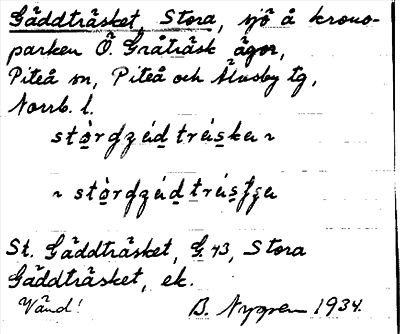 Gäddträsket, Stora, sjö å krono-
parken Ö. Gråträsk ägor,
Piteå sn, Piteå och Älvsby tg,
Norrb. l.
St. Gäddträsket, G. 43, Stora
Gäddträsket, ek.
Vänd! B. Nygren 1934.